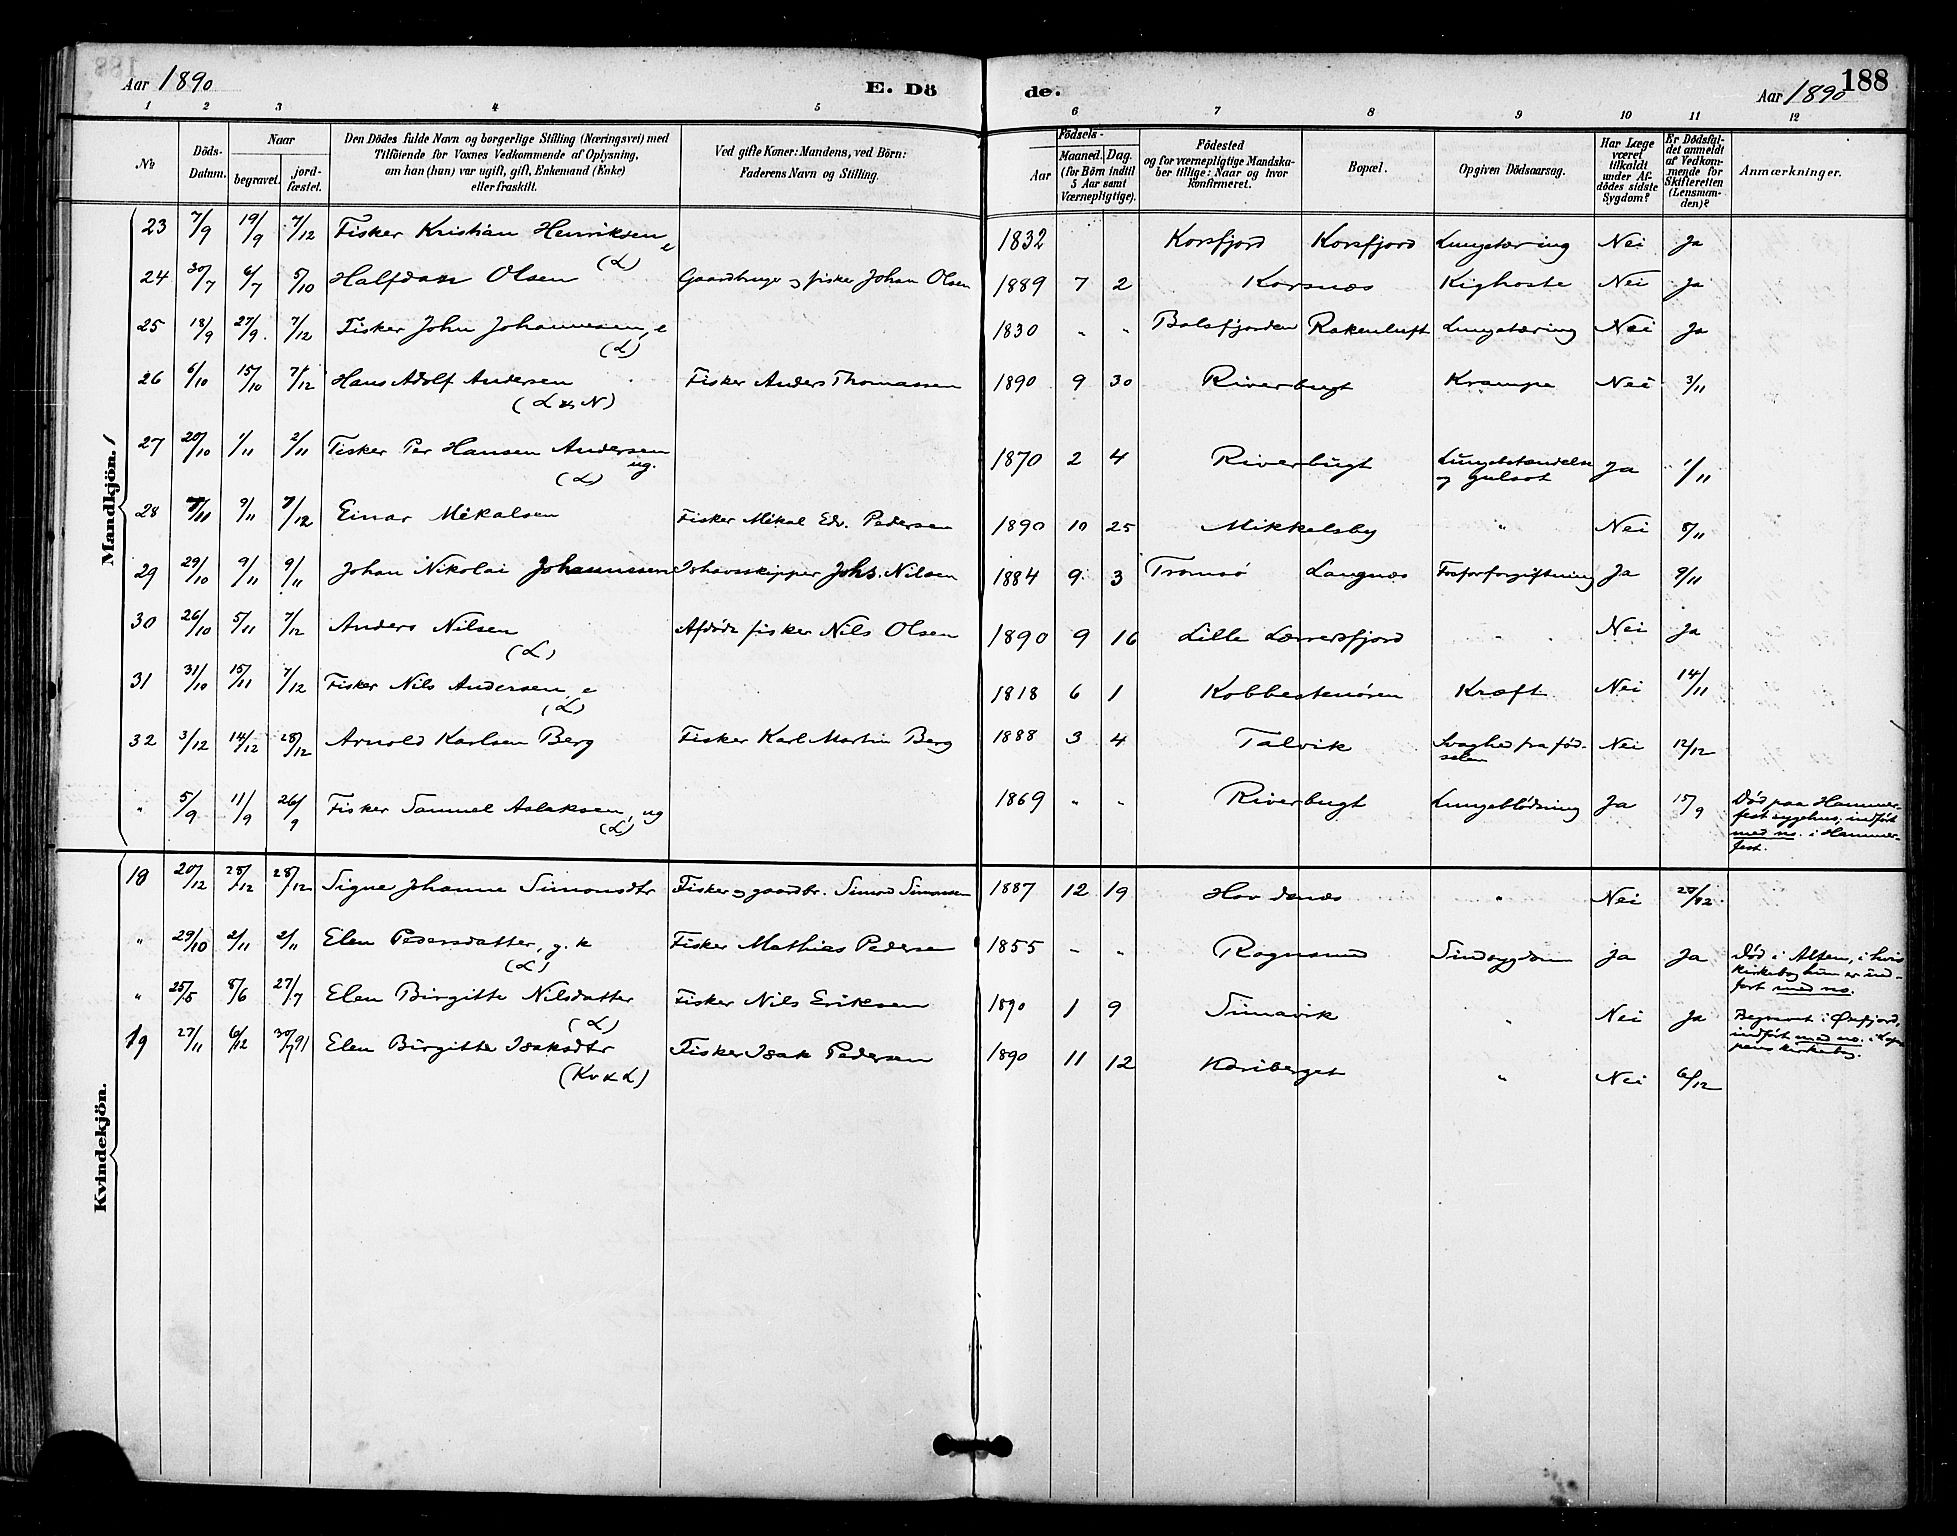 188
Aar 1890 E. Dö de. Aar 1890
1 2 3 4 5 6 7 8 9 10 11 12
No
Döds-Datum.
Naar
begravet.
jord-fæstet.
Den Dödes fulde Navn og borgerlige Stilling (Næringsvei) med
Tilföiende for Voxnes Vedkommende af Oplysning,
om han (hun) var ugift, gift, Enkemand (Enke)
eller fraskilt.
Ved gifte Koner: Mandens, ved Börn:
Faderens Navn og Stilling.
Födsels-
Aar
Maaned. Dag.
(for Börn indtil
5 Aar samt
Værnepligtige).
Födested
og for værnepligtige Mandska-
ber tillige: Naar og hvor
konfirmeret.
Bopæl.
Opgiven Dödsaarsag.
Har Læge
været
tilkaldt
under Af-
dödes sidste
Sygdom?
Er Dödsfal-
det anmeldt
af Vedkom-
mende for
Skifteretten
(Lensman-
den)?
Anmærkninger.
Mandkjön.
23 7/9 19/9 7/12 Fisker Kristian Henriksen, e (L) 1832 Korsfjord Korsfjord Lungetæring Nei Ja
24 30/7 6/7 5/10 Halfdan Olsen Gaardbruger og fisker Johan Olsen 1889 7 2 Korsnæs Kighoste Nei Ja
25 18/9 27/9 7/12 Fisker John Johannesen, e (L) 1830 " " Balsfjorden Rakenluft Lungetæring Nei Ja
26 6/10 15/10 7/12 Hans Adolf Andersen (L & N) Fisker Anders Thomassen 1890 9 30 Riverbugt Krampe Nei 3/11
27 20/10 1/11 2/11 Fisker Per Hansen Andersen ug. (L) 1870 2 4 Riverbugt Lungebetændelse og gulsot Ja 1/11
28 7/11 9/11 7/12 Einar Mikalsen Fisker Mikal Edv. Pedersen 1890 10 25 Mikkelsby " Nei 8/11
29 29/10 9/11 9/11 Johan Nikolai Johannesen Ishavsskipper Johs. Nilsen 1884 9 3 Tromsö Langnæs Fosforforgiftning Ja 9/11
30 26/10 5/11 7/12 Anders Nilsen (L) Afdöde fisker Nils Olsen 1890 9 16 Lille Lerresfjord " Nei Ja
31 31/10 15/11 7/12 Fisker Nils Andersen, e (L) 1818 6 1 Kobbestenören Kræft Nei 14/11
32 3/12 14/12 28/12 Arnold Karlsen Berg Fisker Karl Martin Berg 1888 3 4 Talvik Svaghed fra föd-
selen Nei 12/12
" 5/9 11/9 26/9 Fisker Samuel Aslaksen, ug (L) 1869 " " Riverbugt Lungeblödning Ja 15/9 Död paa Hammer-
fest sygehus, indfört
med no. i Hammer-
fest.
Kvindekjön.
18 20/12 28/12 28/12 Signe Johanne Simonsdtr Fisker og gaardbr. Simon Simonsen 1887 12 19 Havdnæs " Nei 20/12
" 29/10 2/11 2/11 Elen Pedersdatter, g. k (L) Fisker Mathias Pedersen 1855 " " Rognsund Sindssygdom Ja Ja Död i Alten, i hvis
kirkebog hun er ind-
fört med no.
" 25/5 8/6 27/7 Elen Birgitte Nilsdatter (L) Fisker Nils Eriksen 1890 1 9 Simavik " Nei Ja Begravet i Öxfjord,
indfört med no. i Lop-
pens kirkebog.
19 27/11 6/12 30/7 91 Elen Birgitte Isaksdtr (Kv & L) Fisker Isak Pedersen 1890 11 12 Kariberget " Nei 6/12